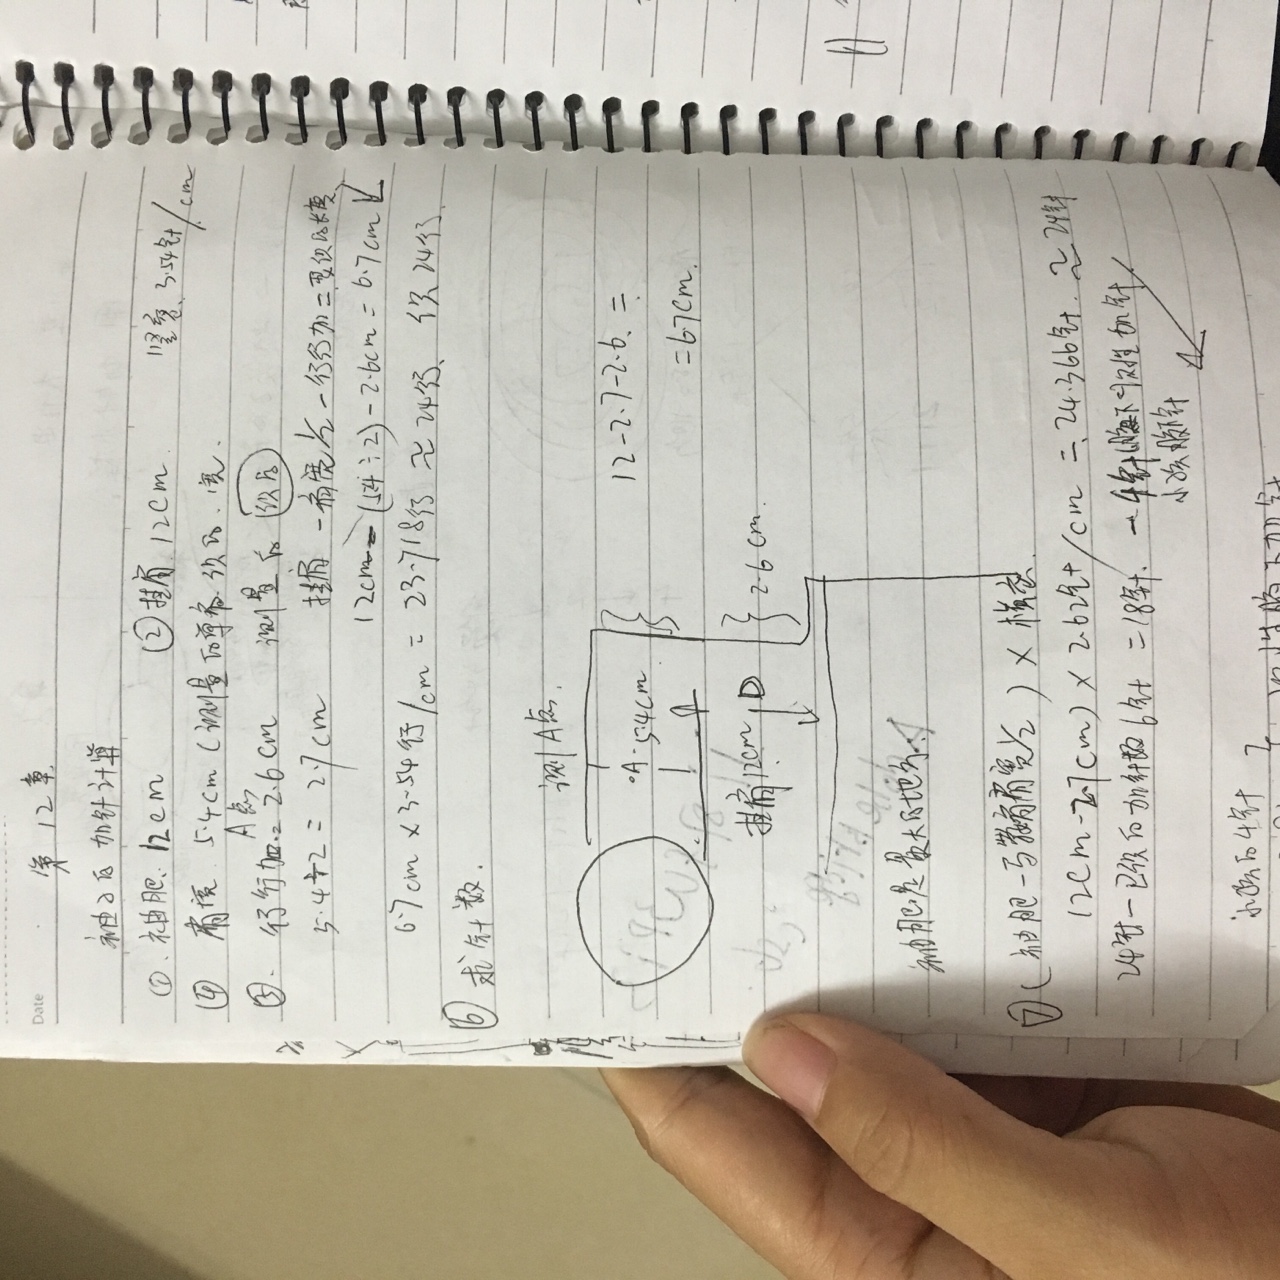 Date
第12章
袖口的加针计算
① 袖肥. 12cm ② 挂肩 12cm. 竖密 3.54针/cm
④ 肩宽 5.4cm (测量的单希织的.宽.
A点
③. 行行加 = 2.6cm 测量后 织后
5.4÷2 = 2.7cm 挂肩-肩宽½-行行加=要织的长度
12cm-(5.4÷2)-2.6cm=6.7cm
6.7cm×3.54行/cm = 23.718行 ≈ 24行. 织24行.
⑥ 求针数.
到A点.
A. 5.4cm
12-2.7-2.6. =
=6.7cm.
挂肩12cm D
2.6cm.
袖肥是最大的地方
⑦ (袖肥-马鞍肩宽½) × 横密.
(12cm-2.7cm) × 2.62针/cm = 24.366针. ≈24针
24针-已织的加针数6针 = 18针. -4针腋下一次性加针
小燕腋针
小燕的4针